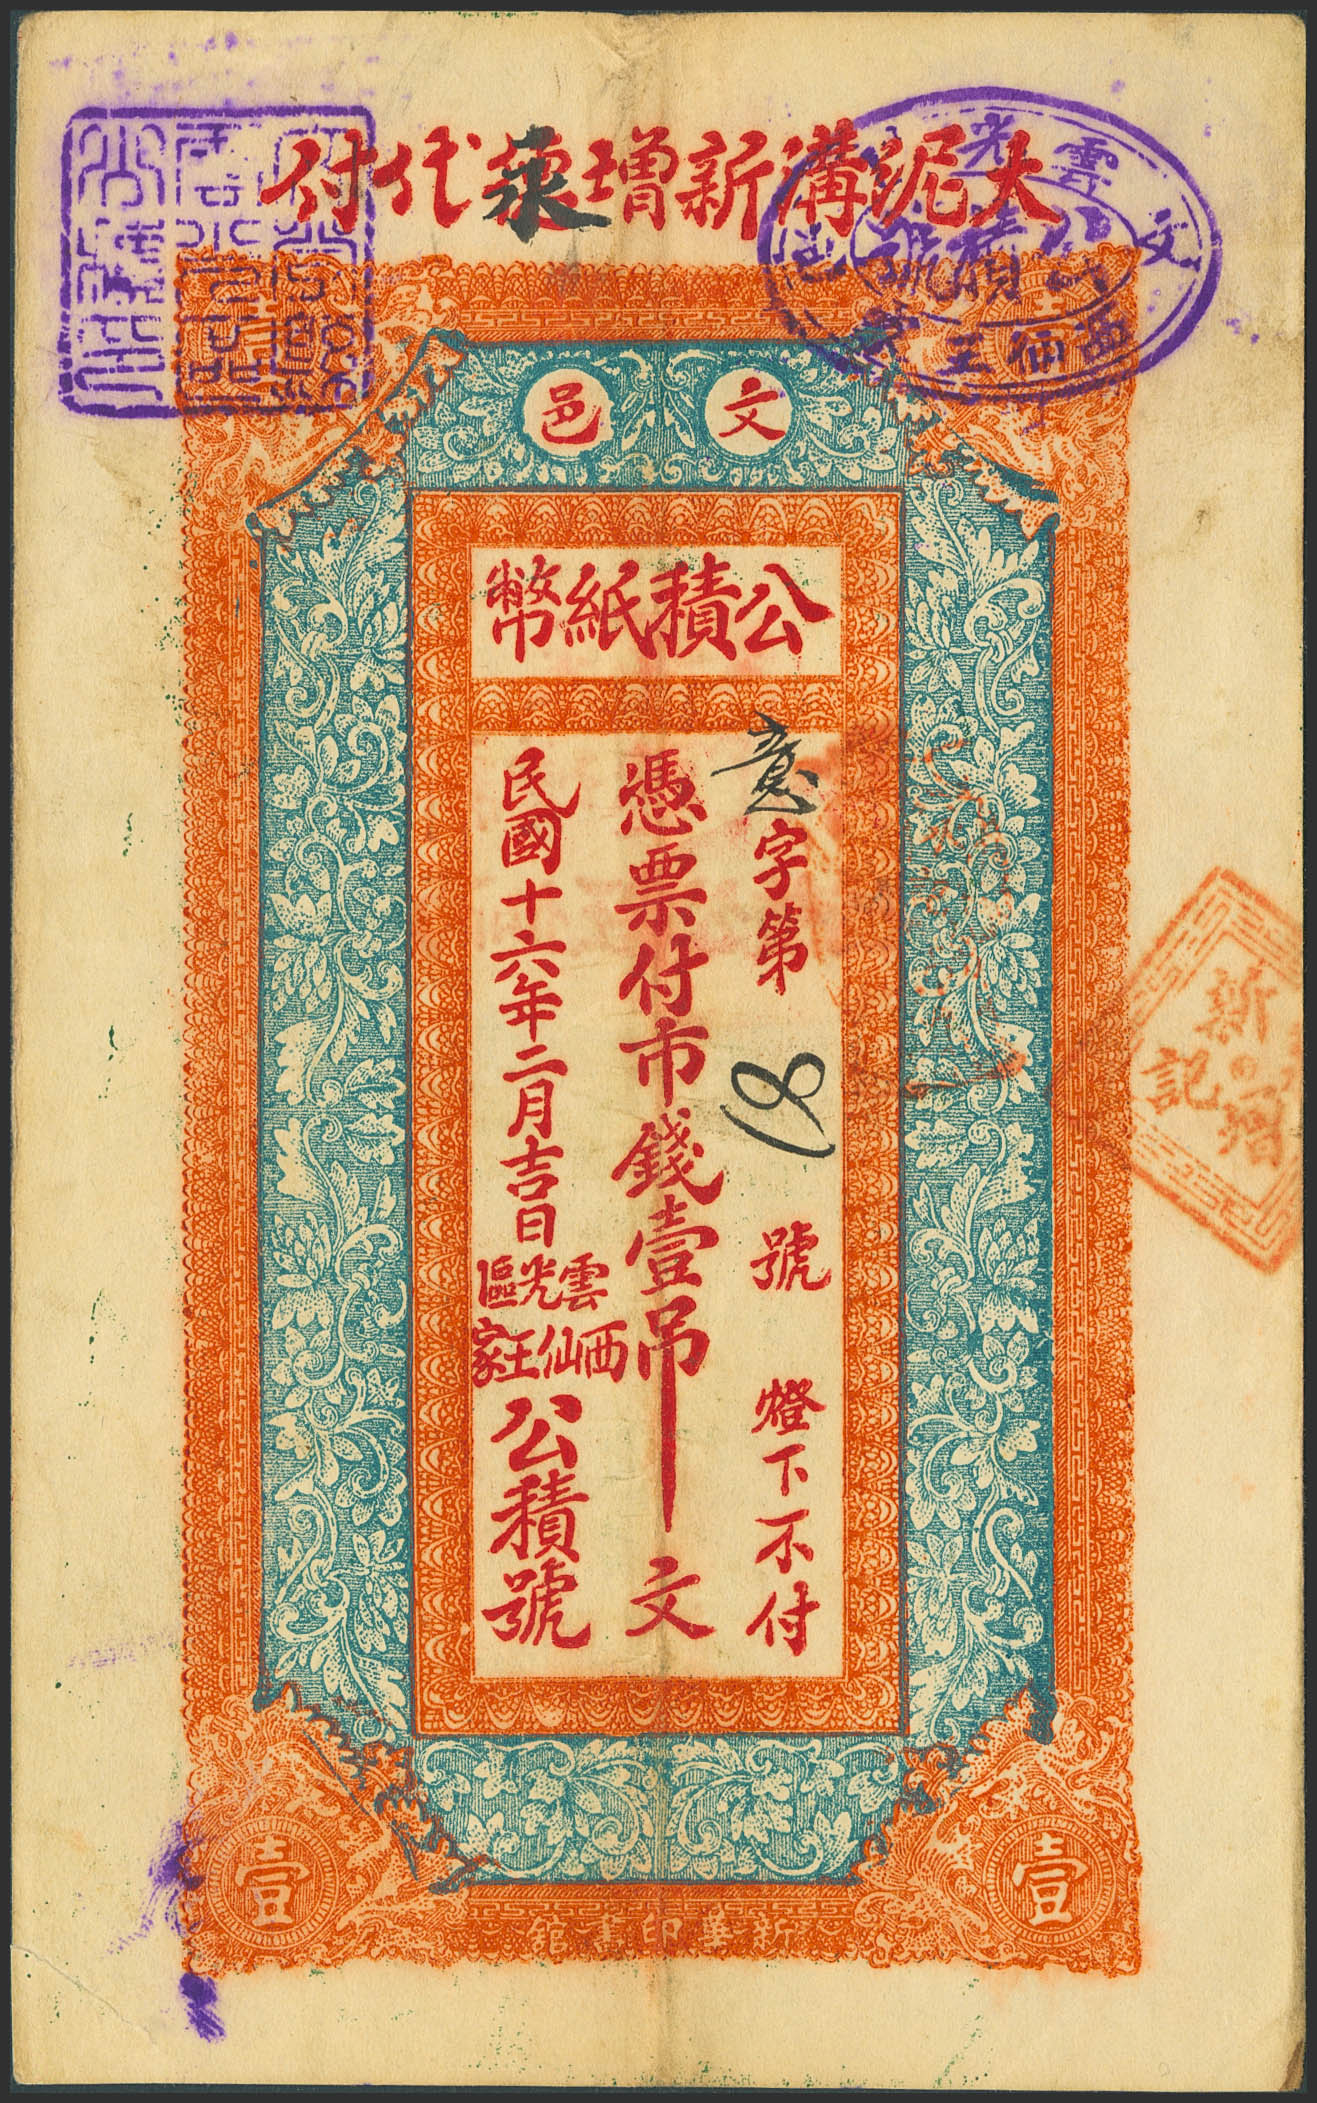 大泥溝新增永代付
文邑
公積紙幣
意字第
號
燈下不付
憑票付市錢壹吊文
民國十六年二月吉日
雲光區
西仙王家
公積號
壹
壹
新華印書館
文
雲光
公積號
西仙王家
新增
記